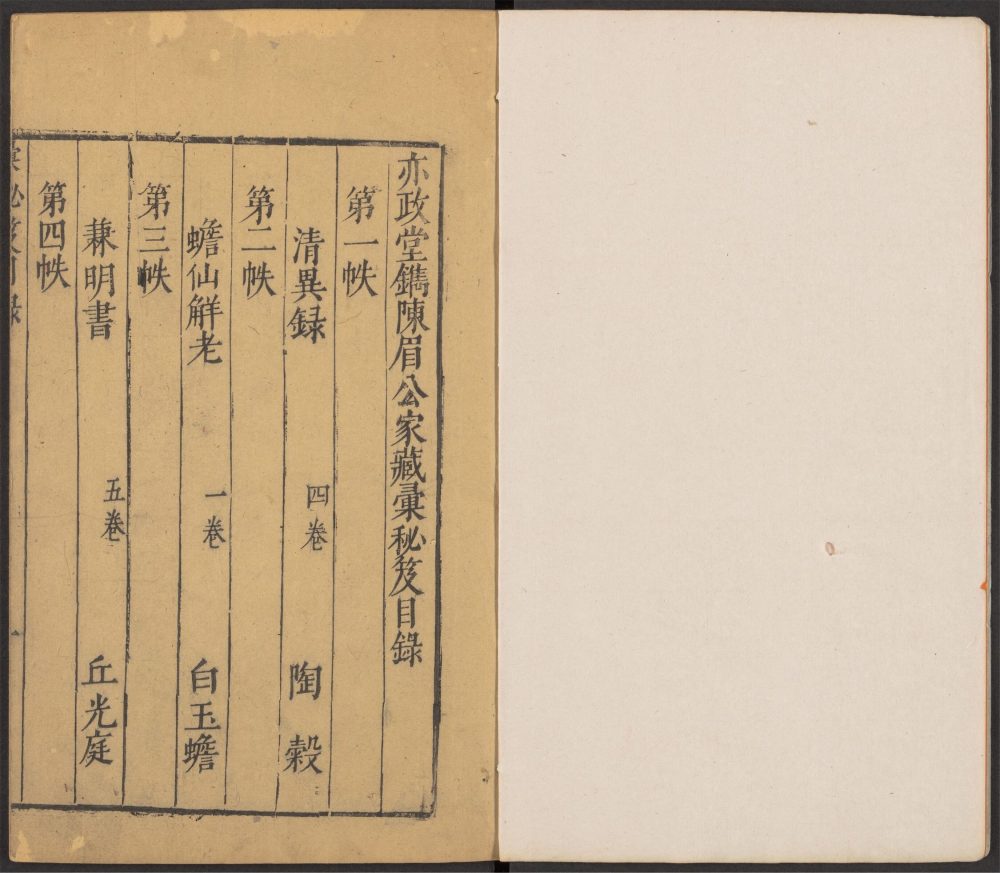 亦政堂鐫陳眉公家藏彙秘笈目錄
第一帙
清異録 四卷 陶穀
第二帙
蟾仙解老 一卷 白玉蟾
第三帙
兼明書 五卷 丘光庭
第四帙
秘笈目録